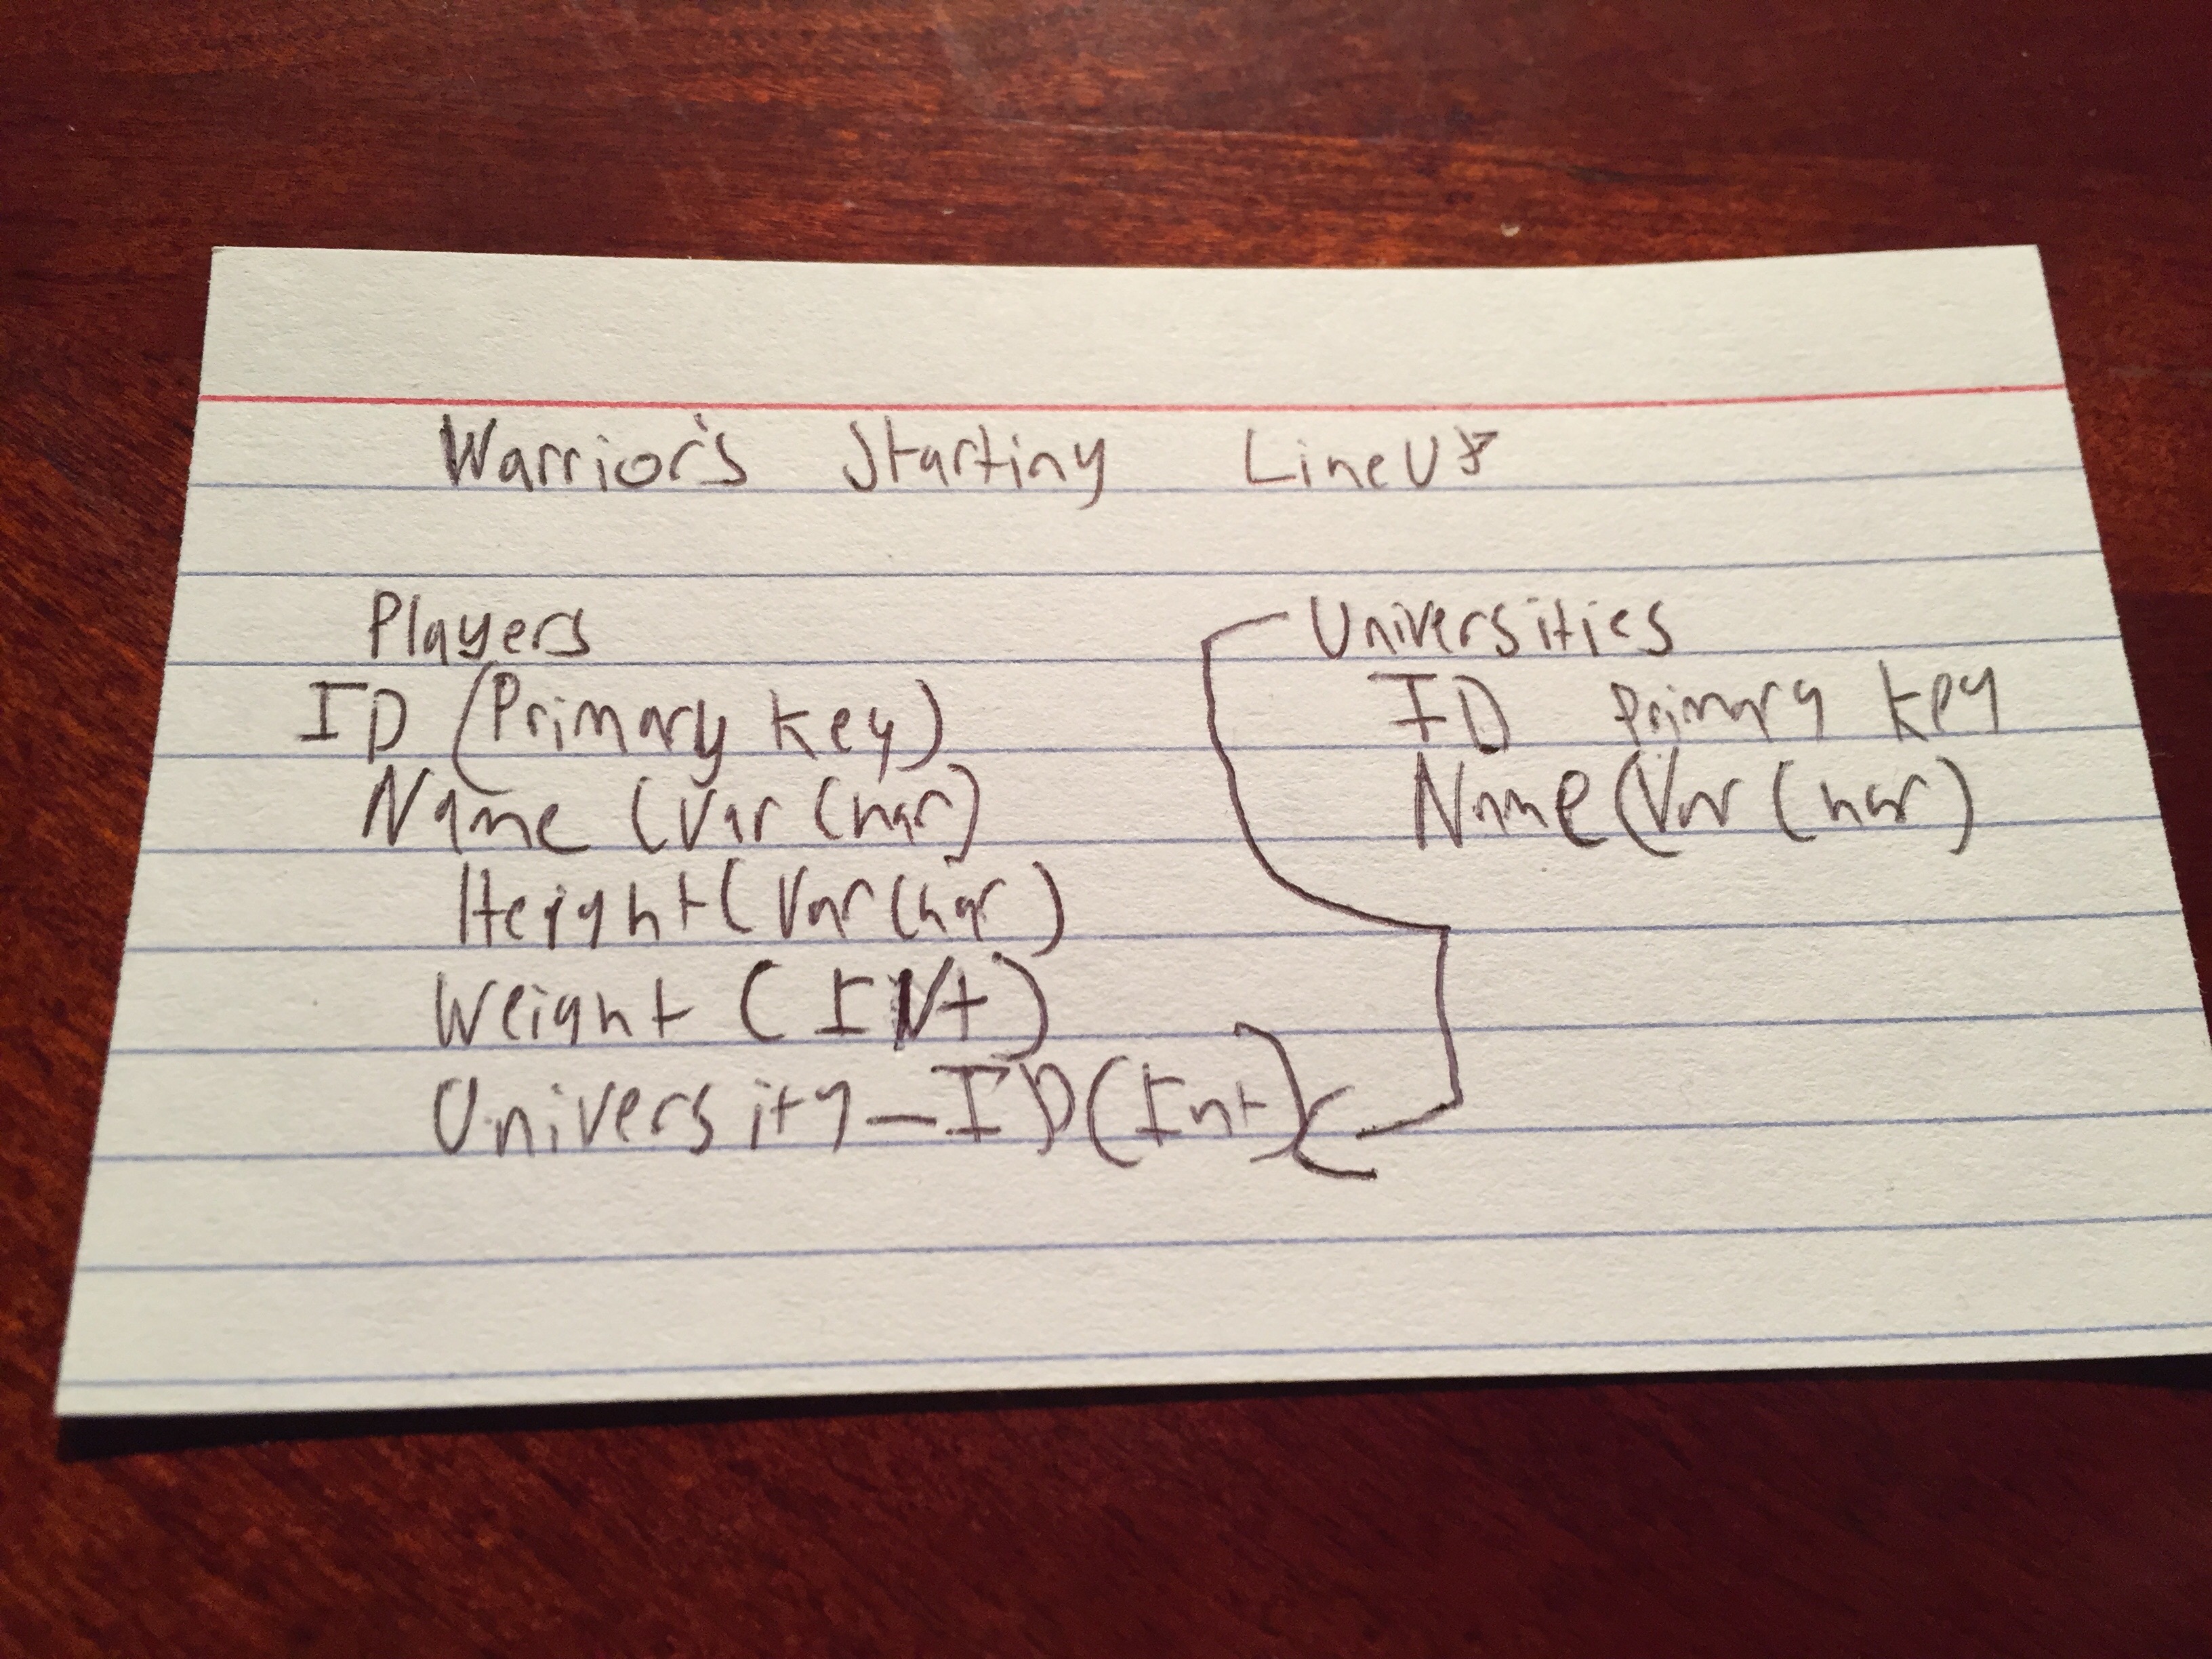 Warrior's Starting LineUp
Players
ID (Primary key)
Name (Varchar)
Height (Varchar)
Weight (INt)
University_ID (Int)
Universities
ID Primary key
Name (Varchar)